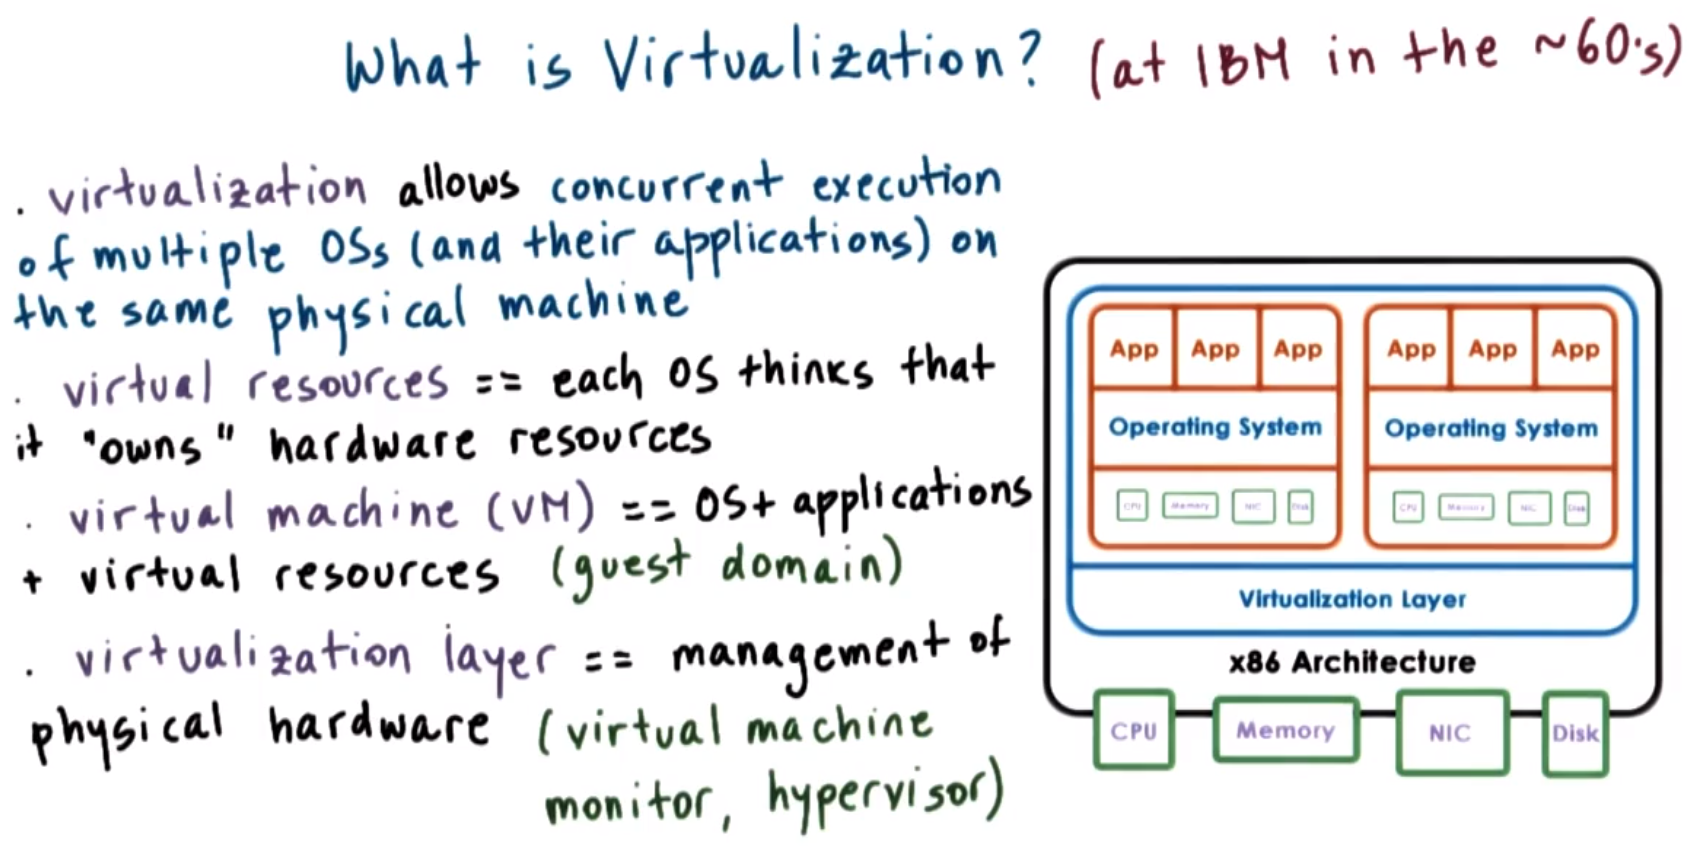 What is Virtualization? (at IBM in the ~60's)
. virtualization allows concurrent execution
of multiple OSs (and their applications) on
the same physical machine
. virtual resources == each OS thinks that
it "owns" hardware resources
. virtual machine (VM) == OS+ applications
+ virtual resources (guest domain)
. virtualization layer == management of
physical hardware (virtual machine
monitor, hypervisor)
App App App App App App
Operating System Operating System
CPU Memory NIC Disk CPU Memory NIC Disk
Virtualization Layer
x86 Architecture
CPU Memory NIC Disk